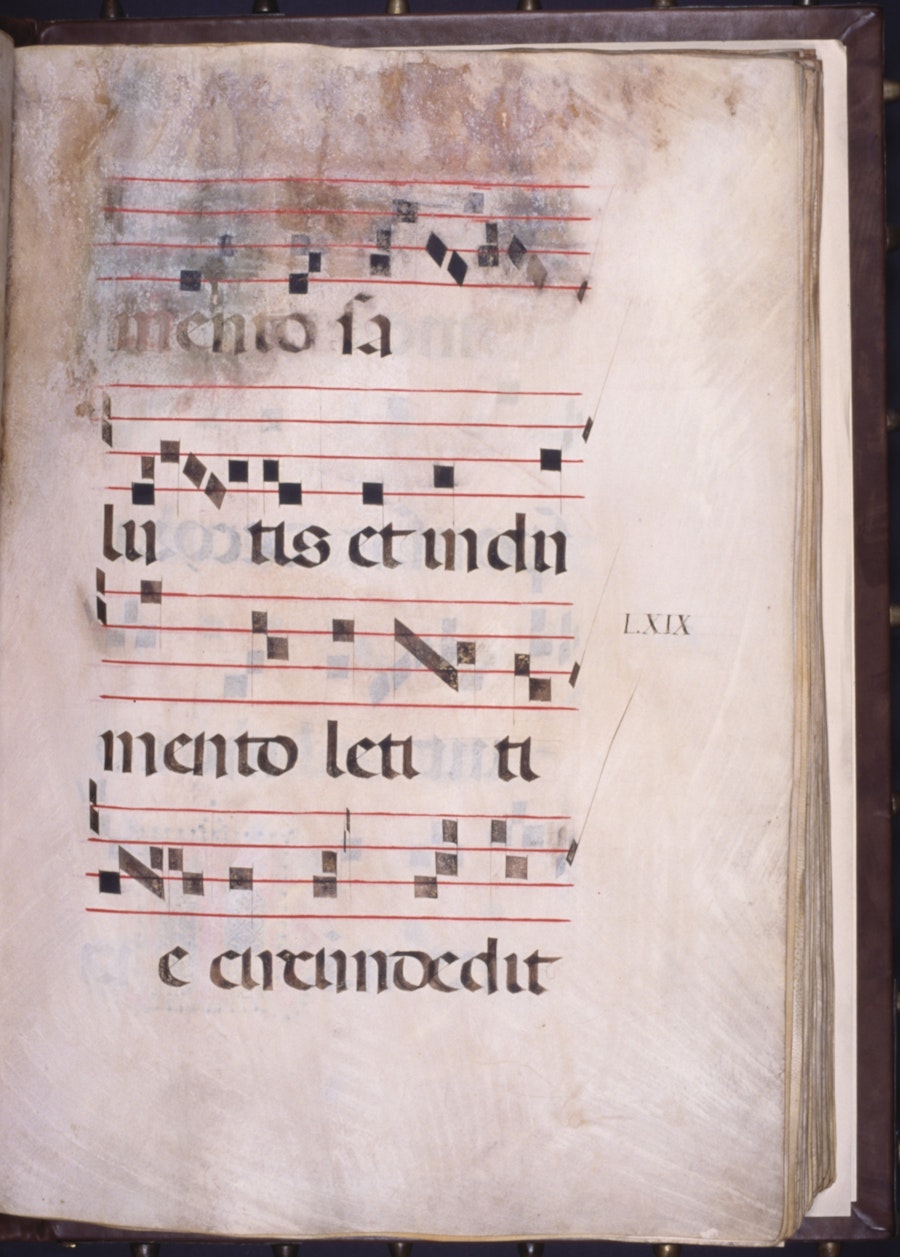 mento sa
lu tis et indu
mento leti ti
LXIX
e circundedit